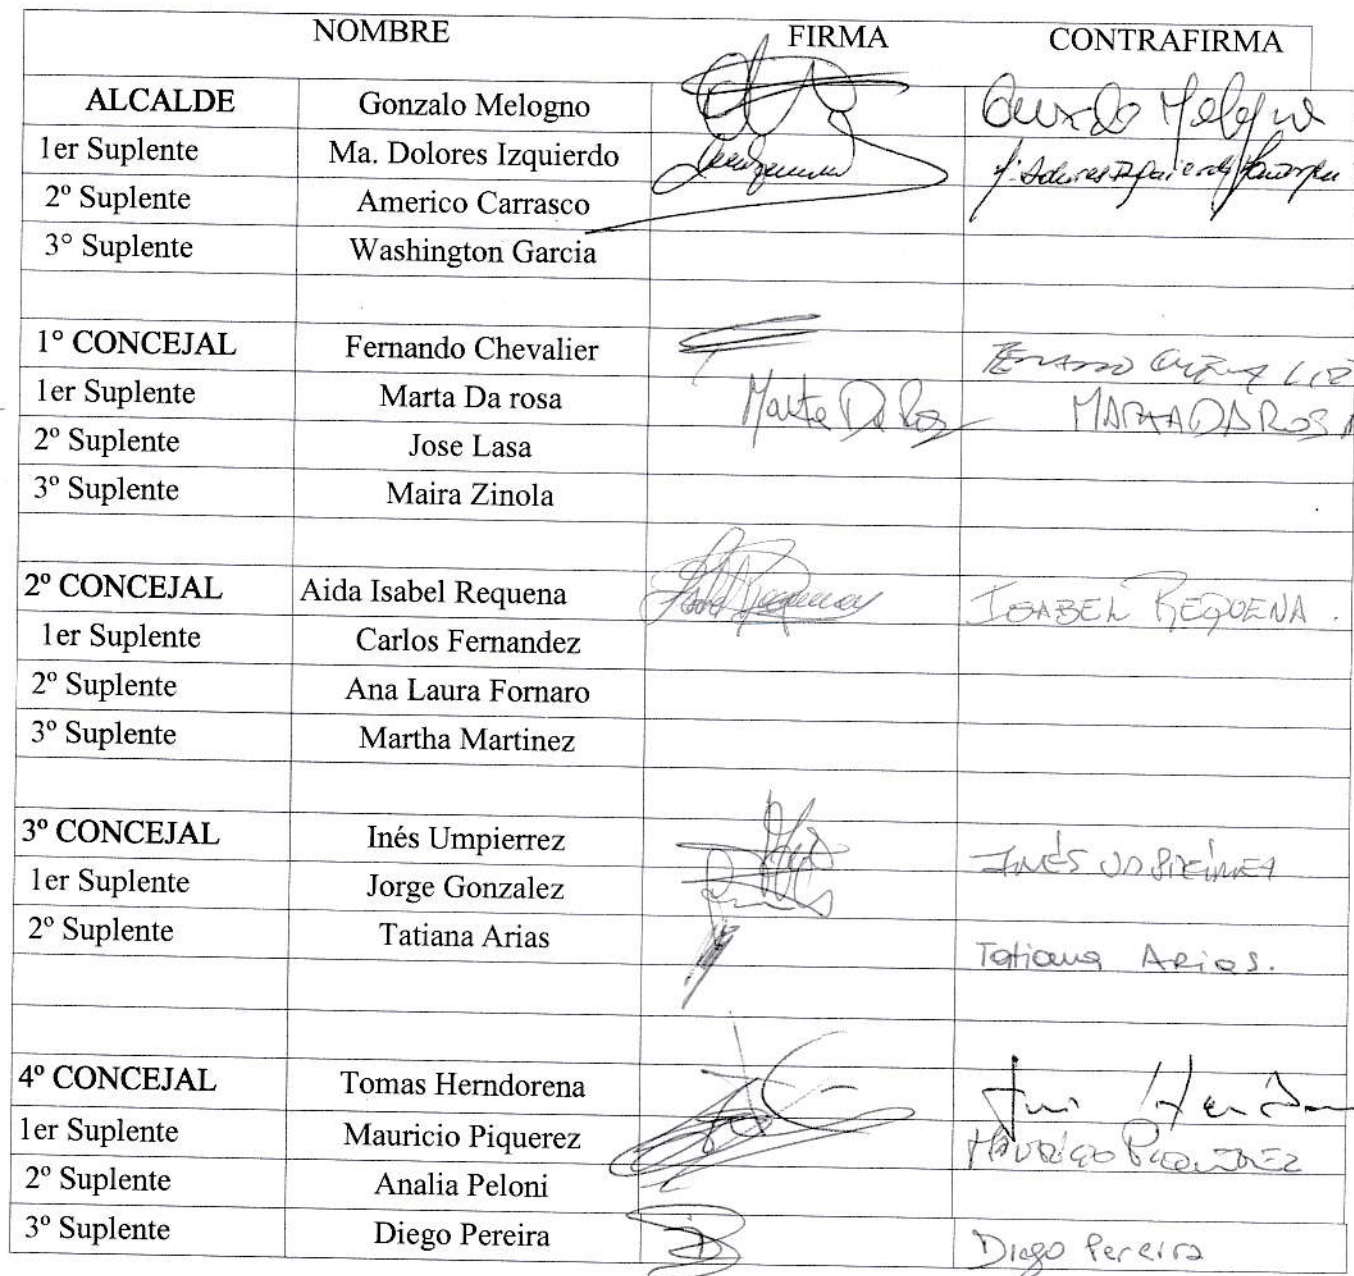 NOMBRE FIRMA CONTRAFIRMA
ALCALDE Gonzalo Melogno
1er Suplente Ma. Dolores Izquierdo
2º Suplente Americo Carrasco
3° Suplente Washington Garcia
1° CONCEJAL Fernando Chevalier
1er Suplente Marta Da rosa Marta Da Ros MARTA DA ROSA
2º Suplente Jose Lasa
3º Suplente Maira Zinola
2º CONCEJAL Aida Isabel Requena ISABEL REQUENA.
1er Suplente Carlos Fernandez
2º Suplente Ana Laura Fornaro
3º Suplente Martha Martinez
3º CONCEJAL Inés Umpierrez INÉS
1er Suplente Jorge Gonzalez
2º Suplente Tatiana Arias Tatiana Arias.
4º CONCEJAL Tomas Herndorena
1er Suplente Mauricio Piquerez MAURICIO PIQUEREZ
2º Suplente Analia Peloni
3º Suplente Diego Pereira Diego Pereira